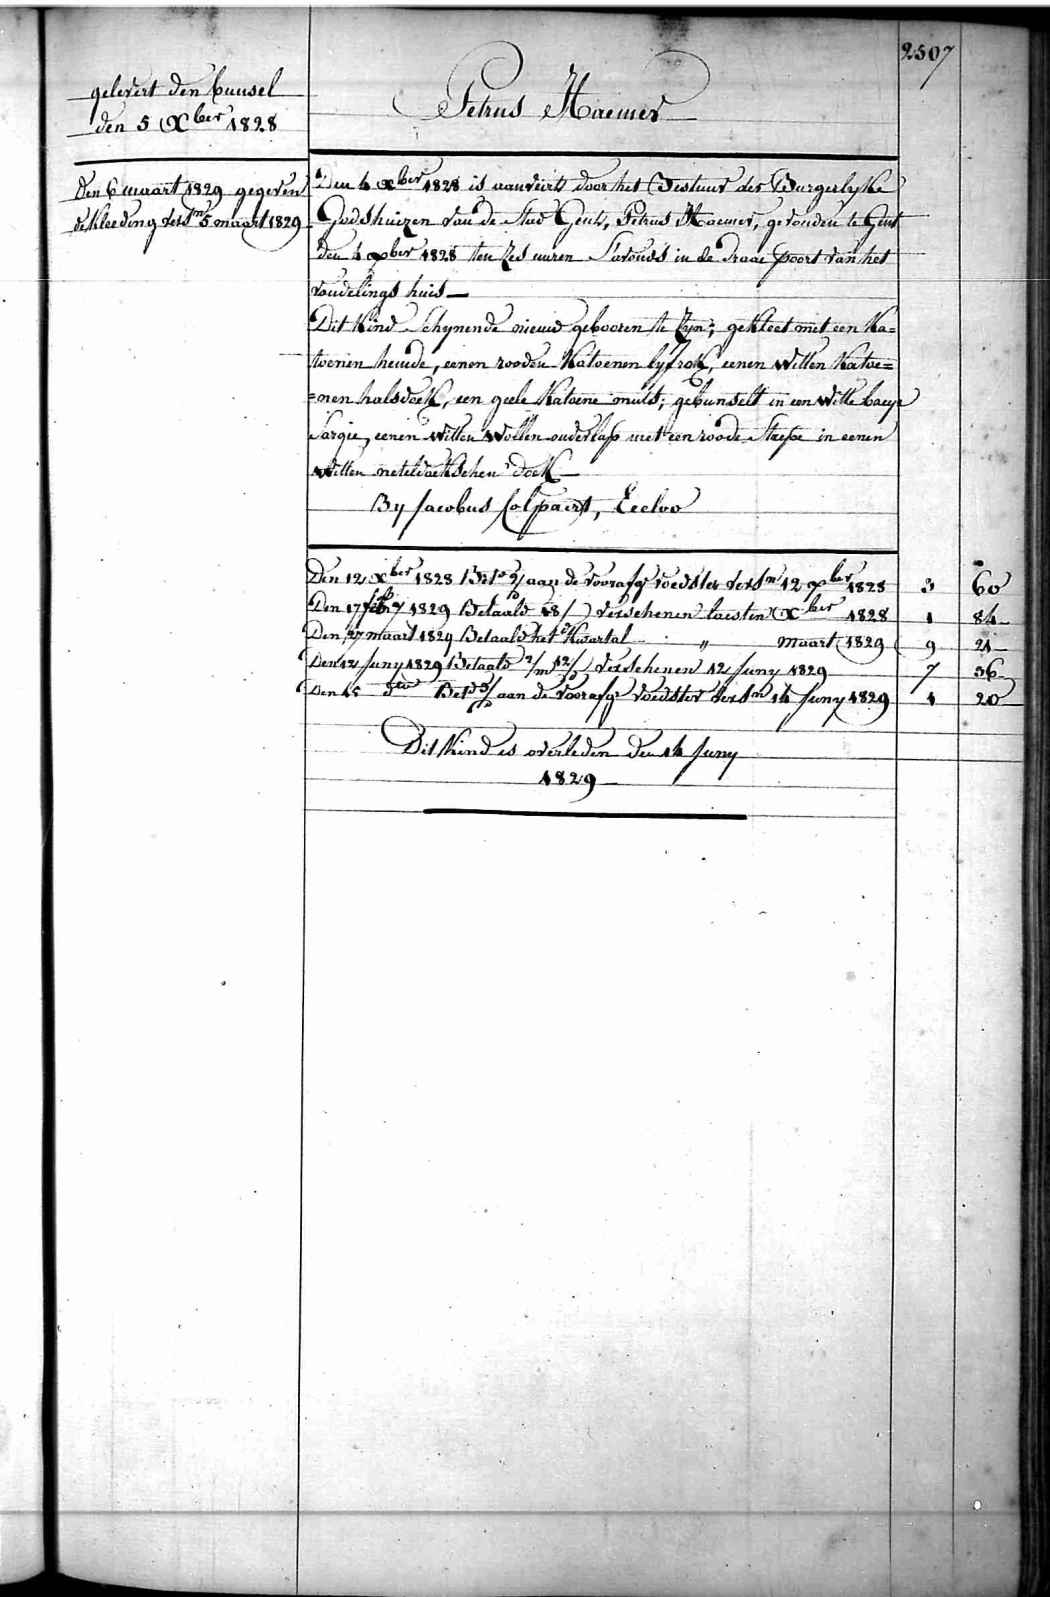 2507
gelevert den bunsel
den 5 Xber 1828
Petrus Haemer
Den 6 maart 1829 gegeven
de Kleeding versm 5 maart 1829
Den 4 Xber 1828 is aanveirt door het Bestuur der Burgerlyke
Godshuizen van de Stad Gent, Petrus Haemer, gevonden te Gent
den 4 Xber 1828 ten zes uuren S'avonds in de Draai poort van het
vondelings huis
Dit Kind Schynende nieuw gebooren te Zyn; gekleet met een Ka=
toenen hemde, eenen rooden Katoenen lyfrok, eenen Witten Katoe=
=nen halsdoek, een geele Katoene muts; gebunselt in een Witte baeye
Sargie, eenen Witten Wollen onderlap met een roode Streepe in eenen
Witten neteldoekschen doek
By Jacobus Colpaert, Eecloo
Den 12 Xber 1828 Bet aan de voorafge voedster versm 12 Xber 1828 3 60
Den 17 feb 1829 Betaald 18/ verschenen laesten Xber 1828 1 84
Den 27 maart 1829 Betaald het Kwartal " maart 1829 9 21
Den 12 Juny 1829 Betaald 2/m 12/ verschenen 12 Juny 1829 7 36
Den 15 dto Bet aan de voorafge voedster versm 14 Juny 1829 1 20
Dit Kind is overleden den 14 Juny
1829